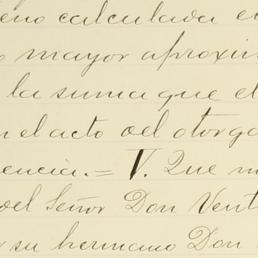 eno calculada e
mayor aproxi
la suma que el
n el acto del otorga
encia.= V. Que m
del Señor Don Vent
su hermano Don